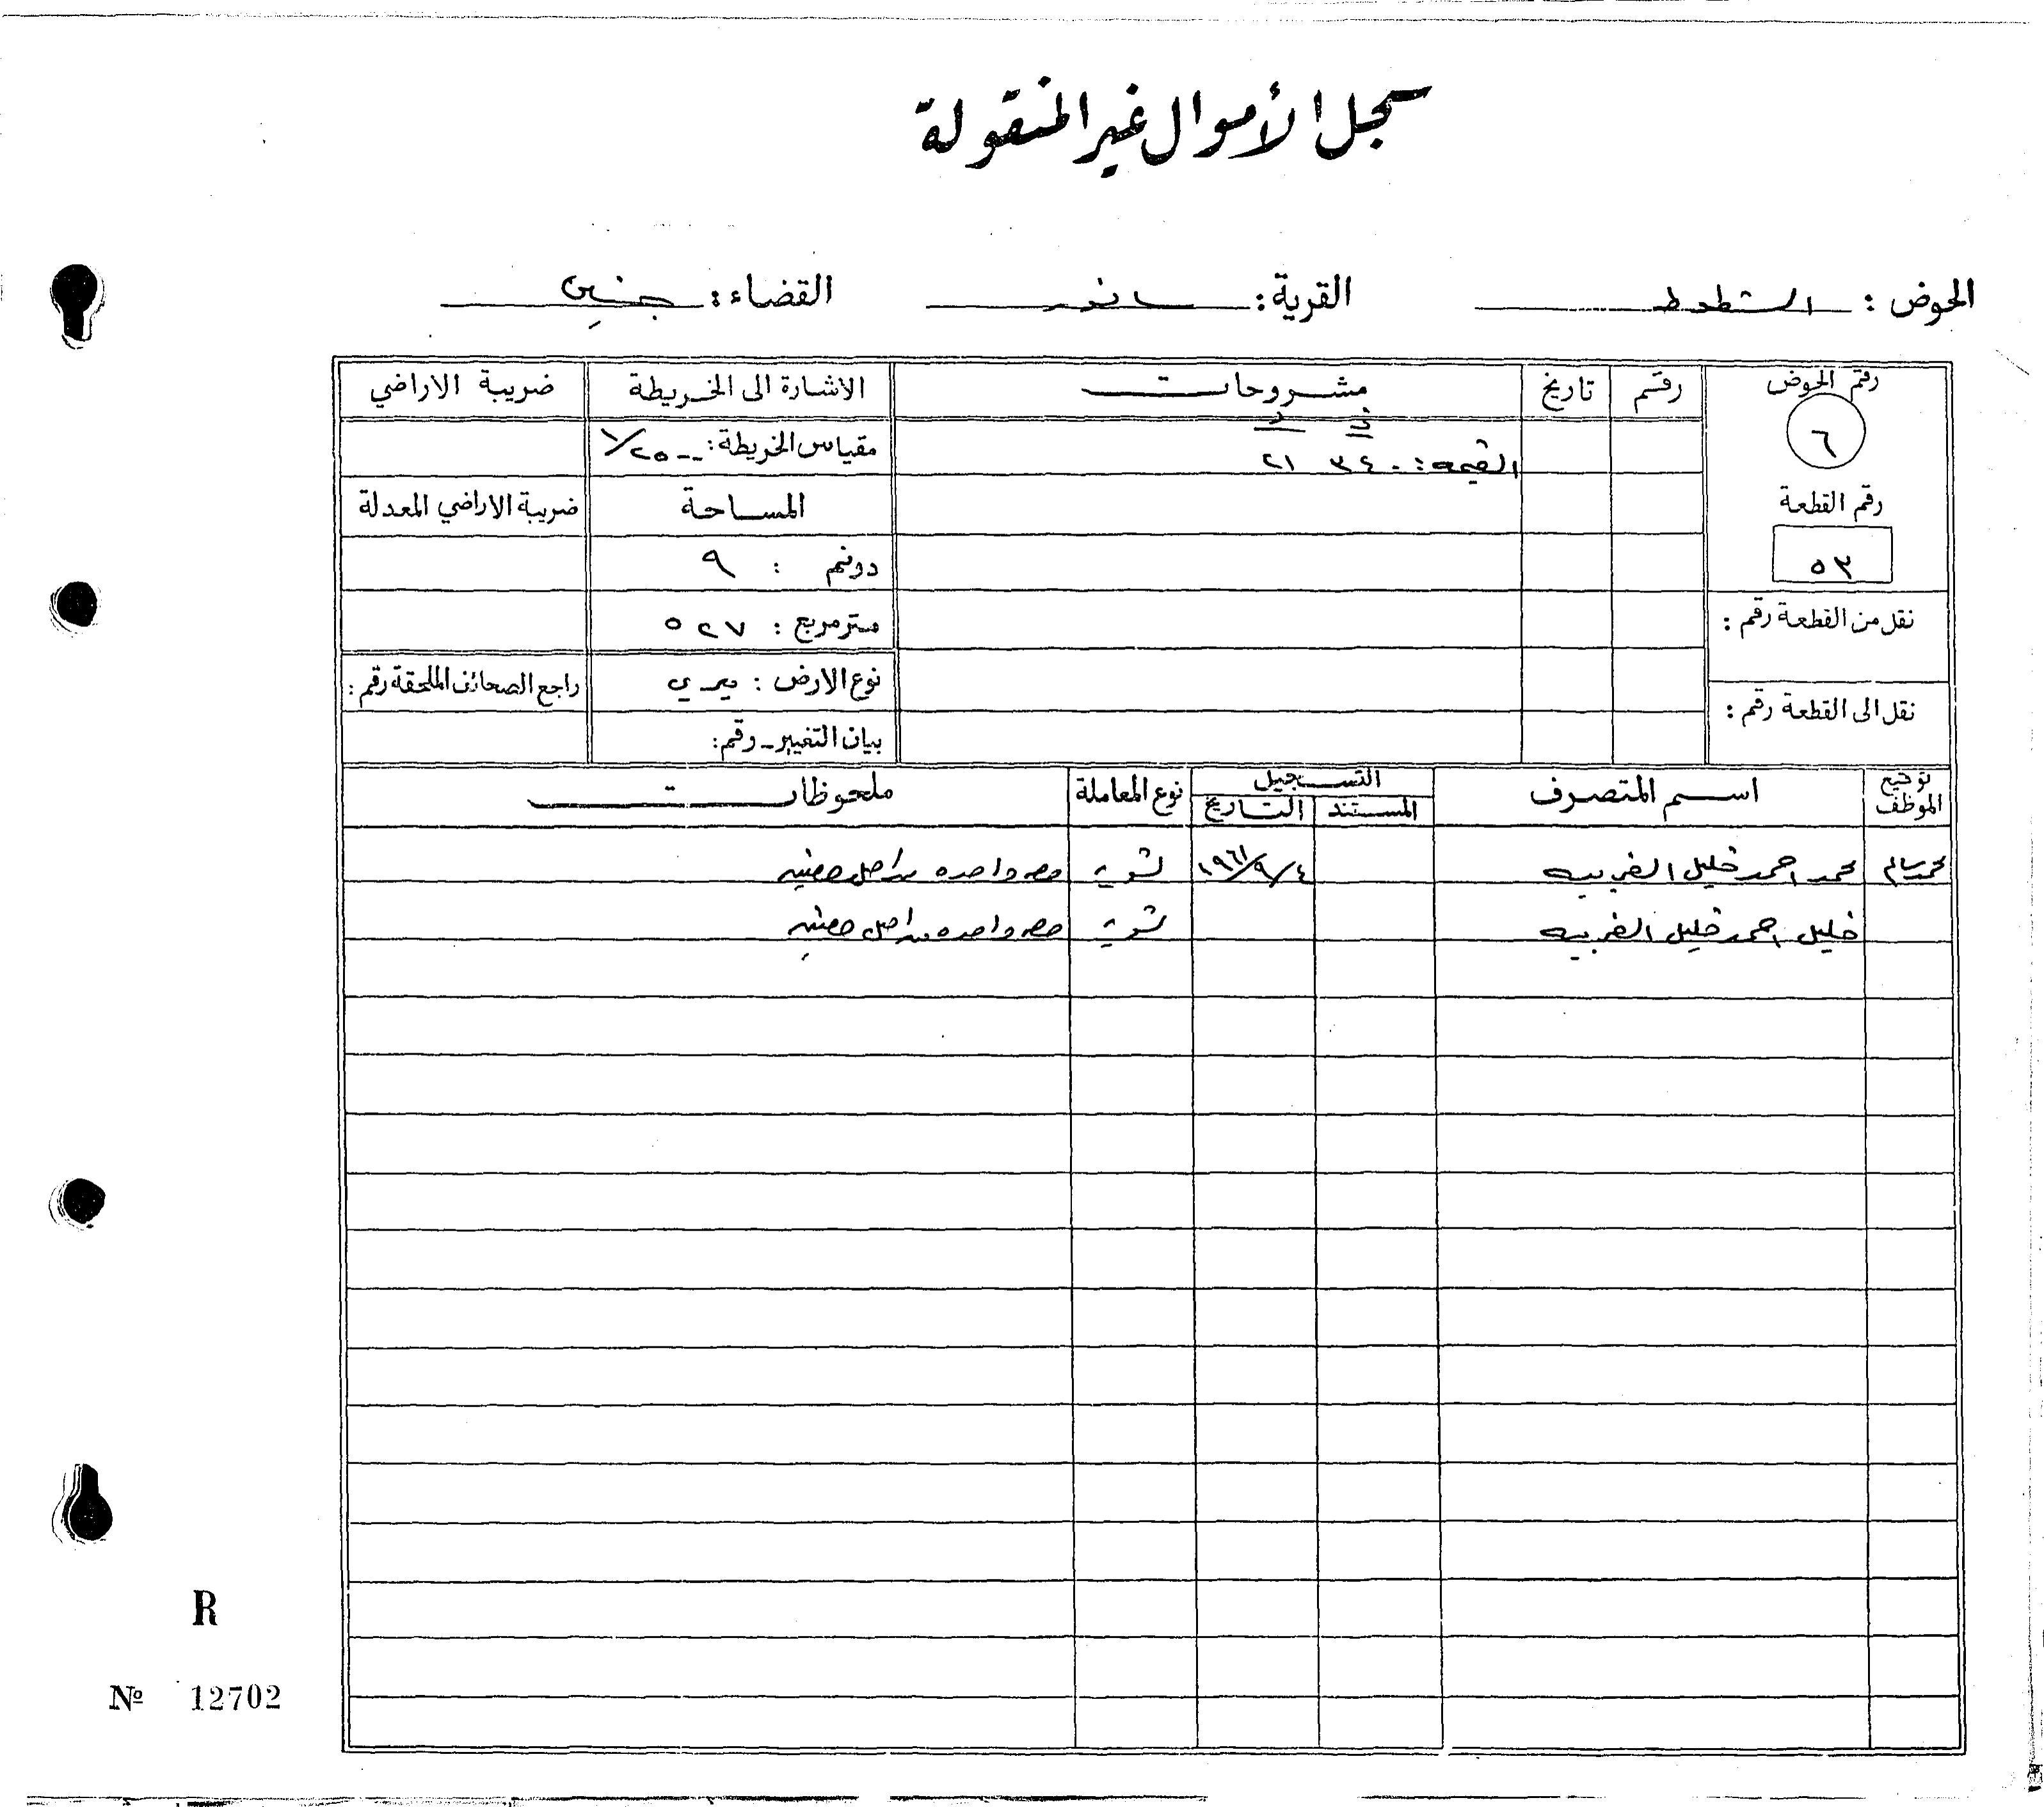 سجل الأموال غير المنقولة
الحوض : الشطوط القرية : سانور القضاء : جنين
رقم الحوض رقم تاريخ مشروحات الاشارة الى الخريطة ضريبة الاراضي
٦
ف د
القيمه : ٣٤٠ ٢١
مقياس الخريطة : ١/٢٥٠٠
رقم القطعة
المساحة ضريبة الاراضي المعدلة
٥٣
دونم : ٩
نقل من القطعة رقم :
متر مربع : ٥٢٧
نوع الارض : ميري راجع الصحائف الملحقة رقم :
نقل الى القطعة رقم :
بيان التغيير - رقم :
توقيع الموظف اسم المتصرف التسجيل نوع المعاملة ملحوظات
المستند التاريخ
محمد سالم محمد احمد خليل الغربيه ٤/٩/١٩٦١ تسوية حصه واحده من اصل حصتين
خليل احمد خليل الغربيه تسوية حصه واحده من اصل حصتين
R
№ 12702